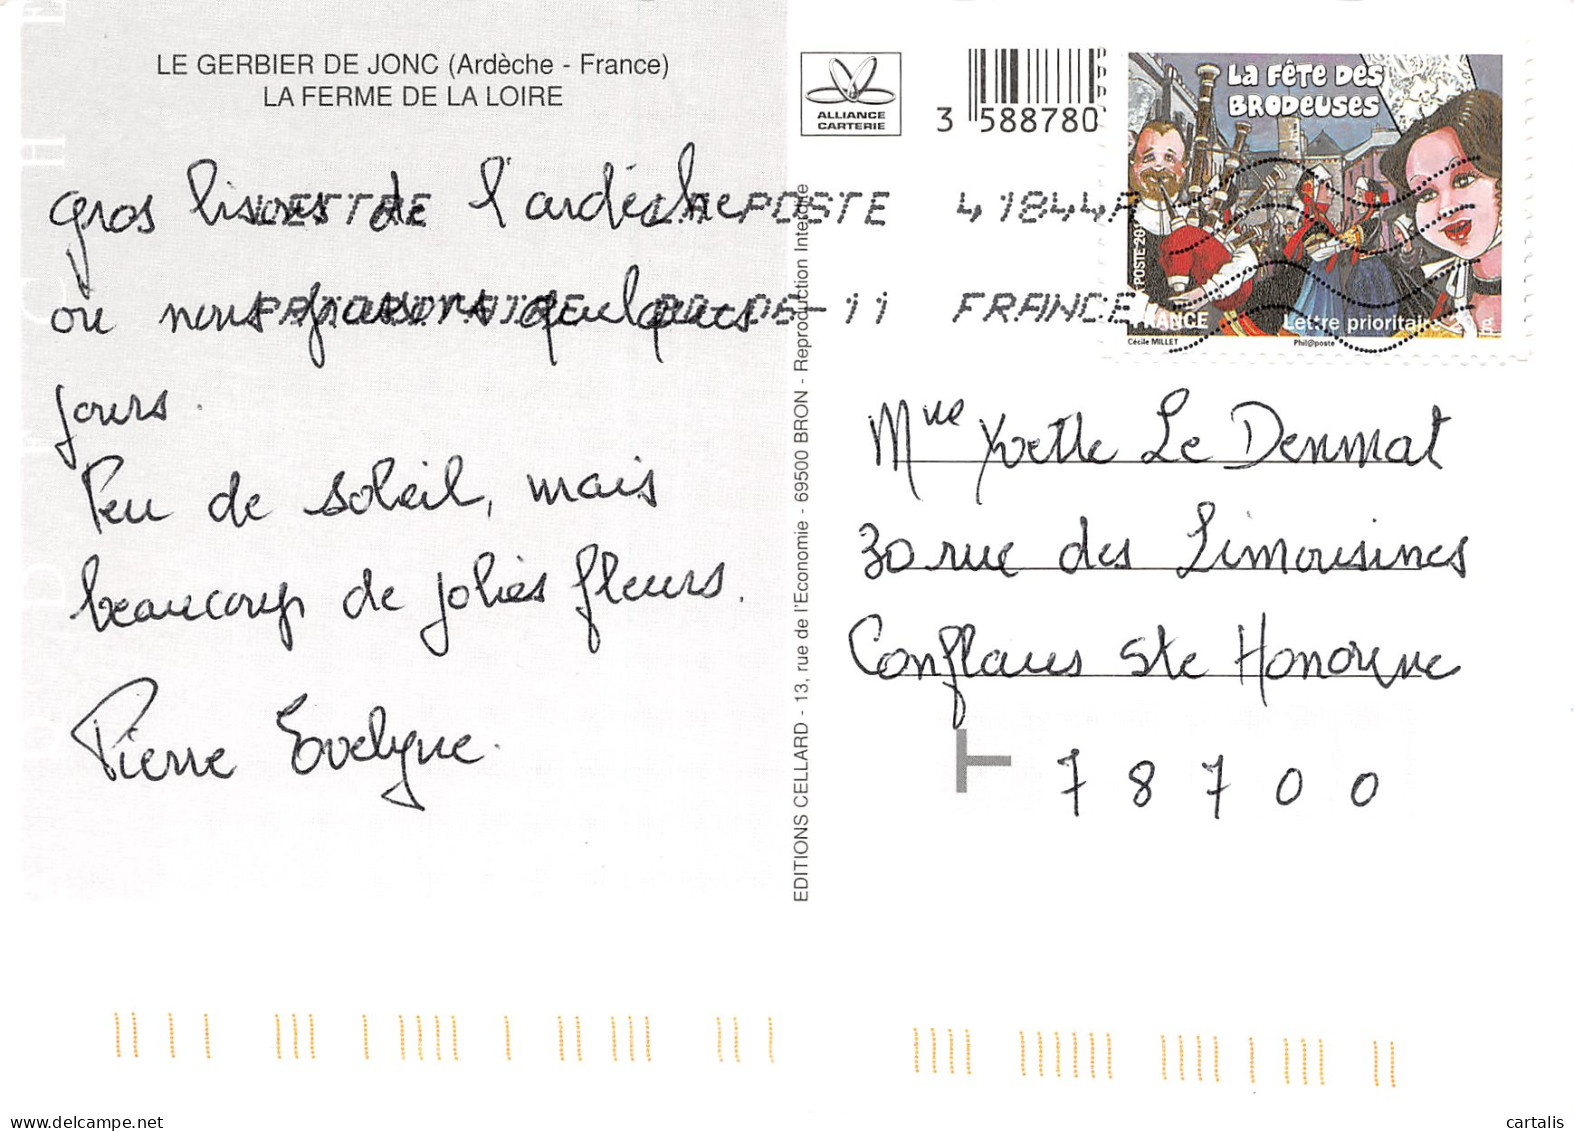 LE GERBIER DE JONC (Ardèche - France)
LA FERME DE LA LOIRE
gros bisous de l'ardèche
où nous passons quelques
jours.
Peu de soleil, mais
beaucoup de jolies fleurs.
Pierre Evelyne.
EDITIONS CELLARD - 13, rue de l'Economie - 69500 BRON - Reproduction Interdite
ALLIANCE
CARTERIE
3 588780
LA FÊTE DES
BRODEUSES
POSTE 201
FRANCE
Lettre prioritaire 20g
Cécile MILLET
Phil@poste
LETTRE LA POSTE 41844A
PRIORITAIRE 06-11 FRANCE
Mme Yvette Le Denmat
30 rue des Limousines
Conflans Ste Honorine
78700
delcampe.net
cartalis